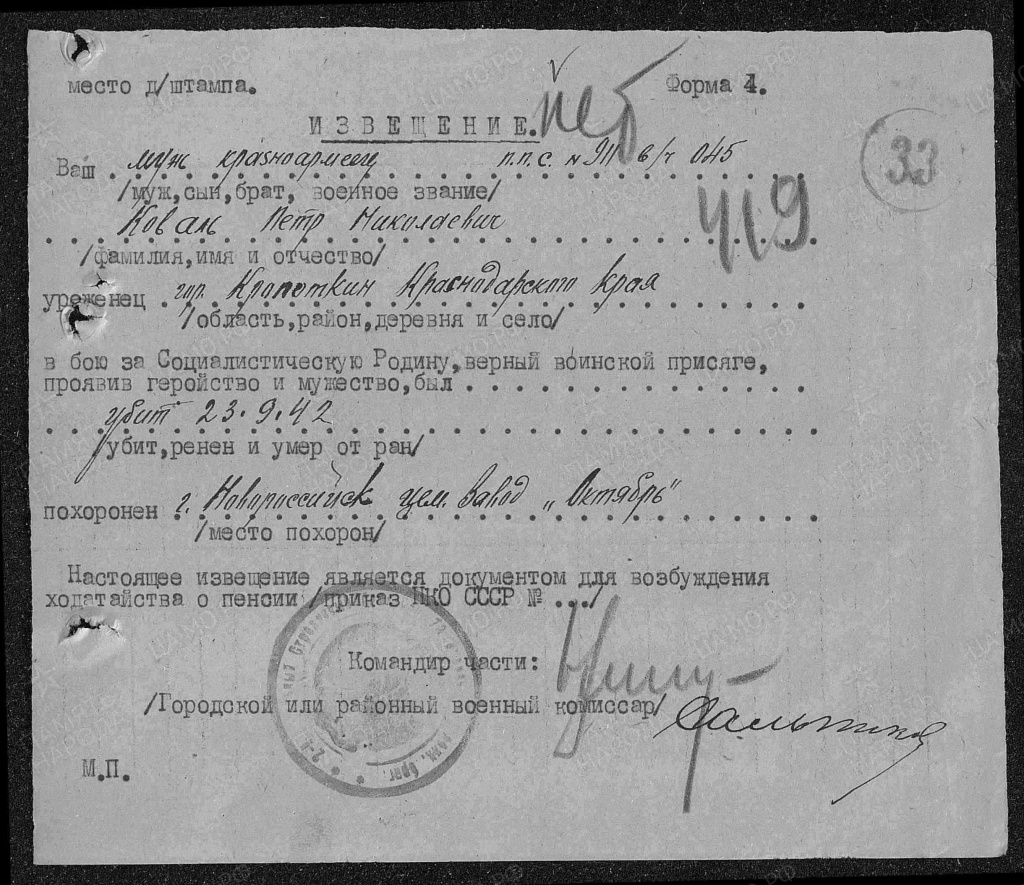 место д/штампа. Форма 4.
ИЗВЕЩЕНИЕ. нет
33
Ваш муж красноармеец п.п.с. № 911 в/ч 045
/муж,сын,брат, военное звание/
419
Коваль Петр Николаевич
/фамилия,имя и отчество/
уреженец гор. Кропоткин Краснодарского края
/область,район,деревня и село/
в бою за Социалистическую Родину,верный воинской присяге,
проявив геройство и мужество,был
убит 23.9.42
/убит,ренен и умер от ран/
похоронен г. Новороссийск цем. завод „Октябрь"
/место похорон/
Настоящее извещение является документом для возбуждения
ходатайства о пенсии /приказ НКО СССР № .../
Командир части:
/Городской или районный военный комиссар/
М.П.